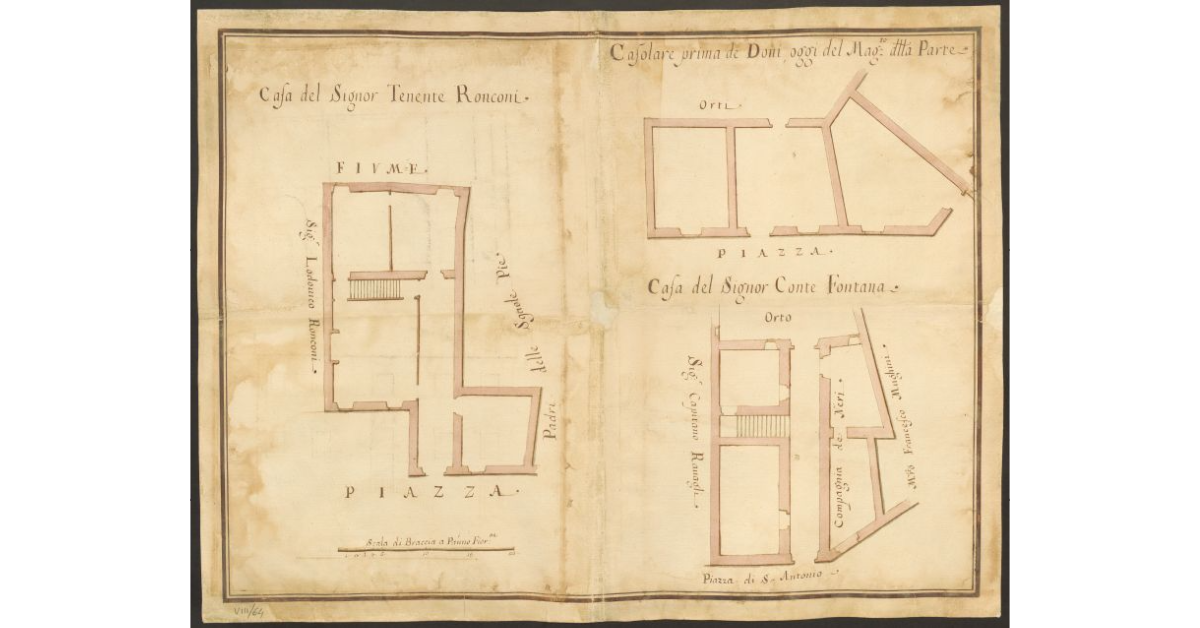 Casa del Signor Tenente Ronconi.
FIVME.
Sig.r Lodouico Ronconi.
Padri delle Squole Pie
PIAZZA.
Scala di Braccia a Panno Fior.ne
Casolare prima de Doni, oggi del Mag.to d̃lla Parte
Orti.
PIAZZA.
Casa del Signor Conte Fontana
Orto
Sig.r Capitano Rauagli.
Compagnia de Neri.
M.o Francesco
Piazza di S. Antonio
VIII/64